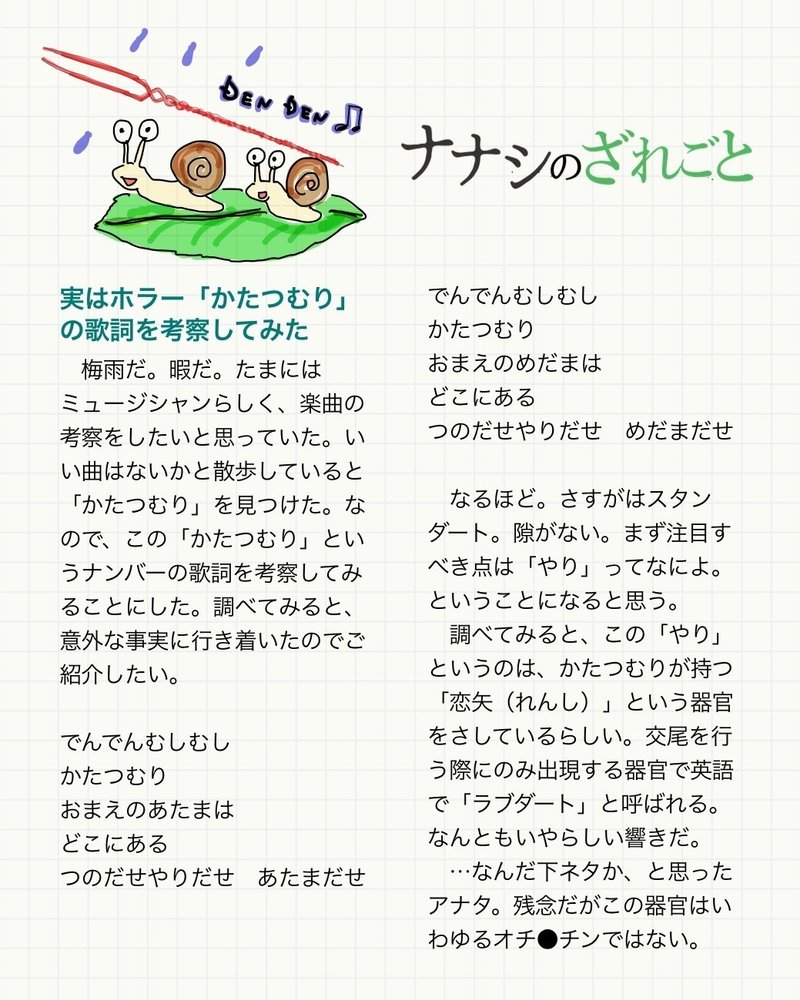 DEN DEN♫
ナナシのざれごと
実はホラー「かたつむり」
の歌詞を考察してみた
　梅雨だ。暇だ。たまには
ミュージシャンらしく、楽曲の
考察をしたいと思っていた。い
い曲はないかと散歩していると
「かたつむり」を見つけた。な
ので、この「かたつむり」とい
うナンバーの歌詞を考察してみ
ることにした。調べてみると、
意外な事実に行き着いたのでご
紹介したい。
でんでんむしむし
かたつむり
おまえのあたまは
どこにある
つのだせやりだせ　あたまだせ
でんでんむしむし
かたつむり
おまえのめだまは
どこにある
つのだせやりだせ　めだまだせ
　なるほど。さすがはスタン
ダート。隙がない。まず注目す
べき点は「やり」ってなによ。
ということになると思う。
　調べてみると、この「やり」
というのは、かたつむりが持つ
「恋矢（れんし）」という器官
をさしているらしい。交尾を行
う際にのみ出現する器官で英語
で「ラブダート」と呼ばれる。
なんともいやらしい響きだ。
　…なんだ下ネタか、と思った
アナタ。残念だがこの器官はい
わゆるオチ●チンではない。